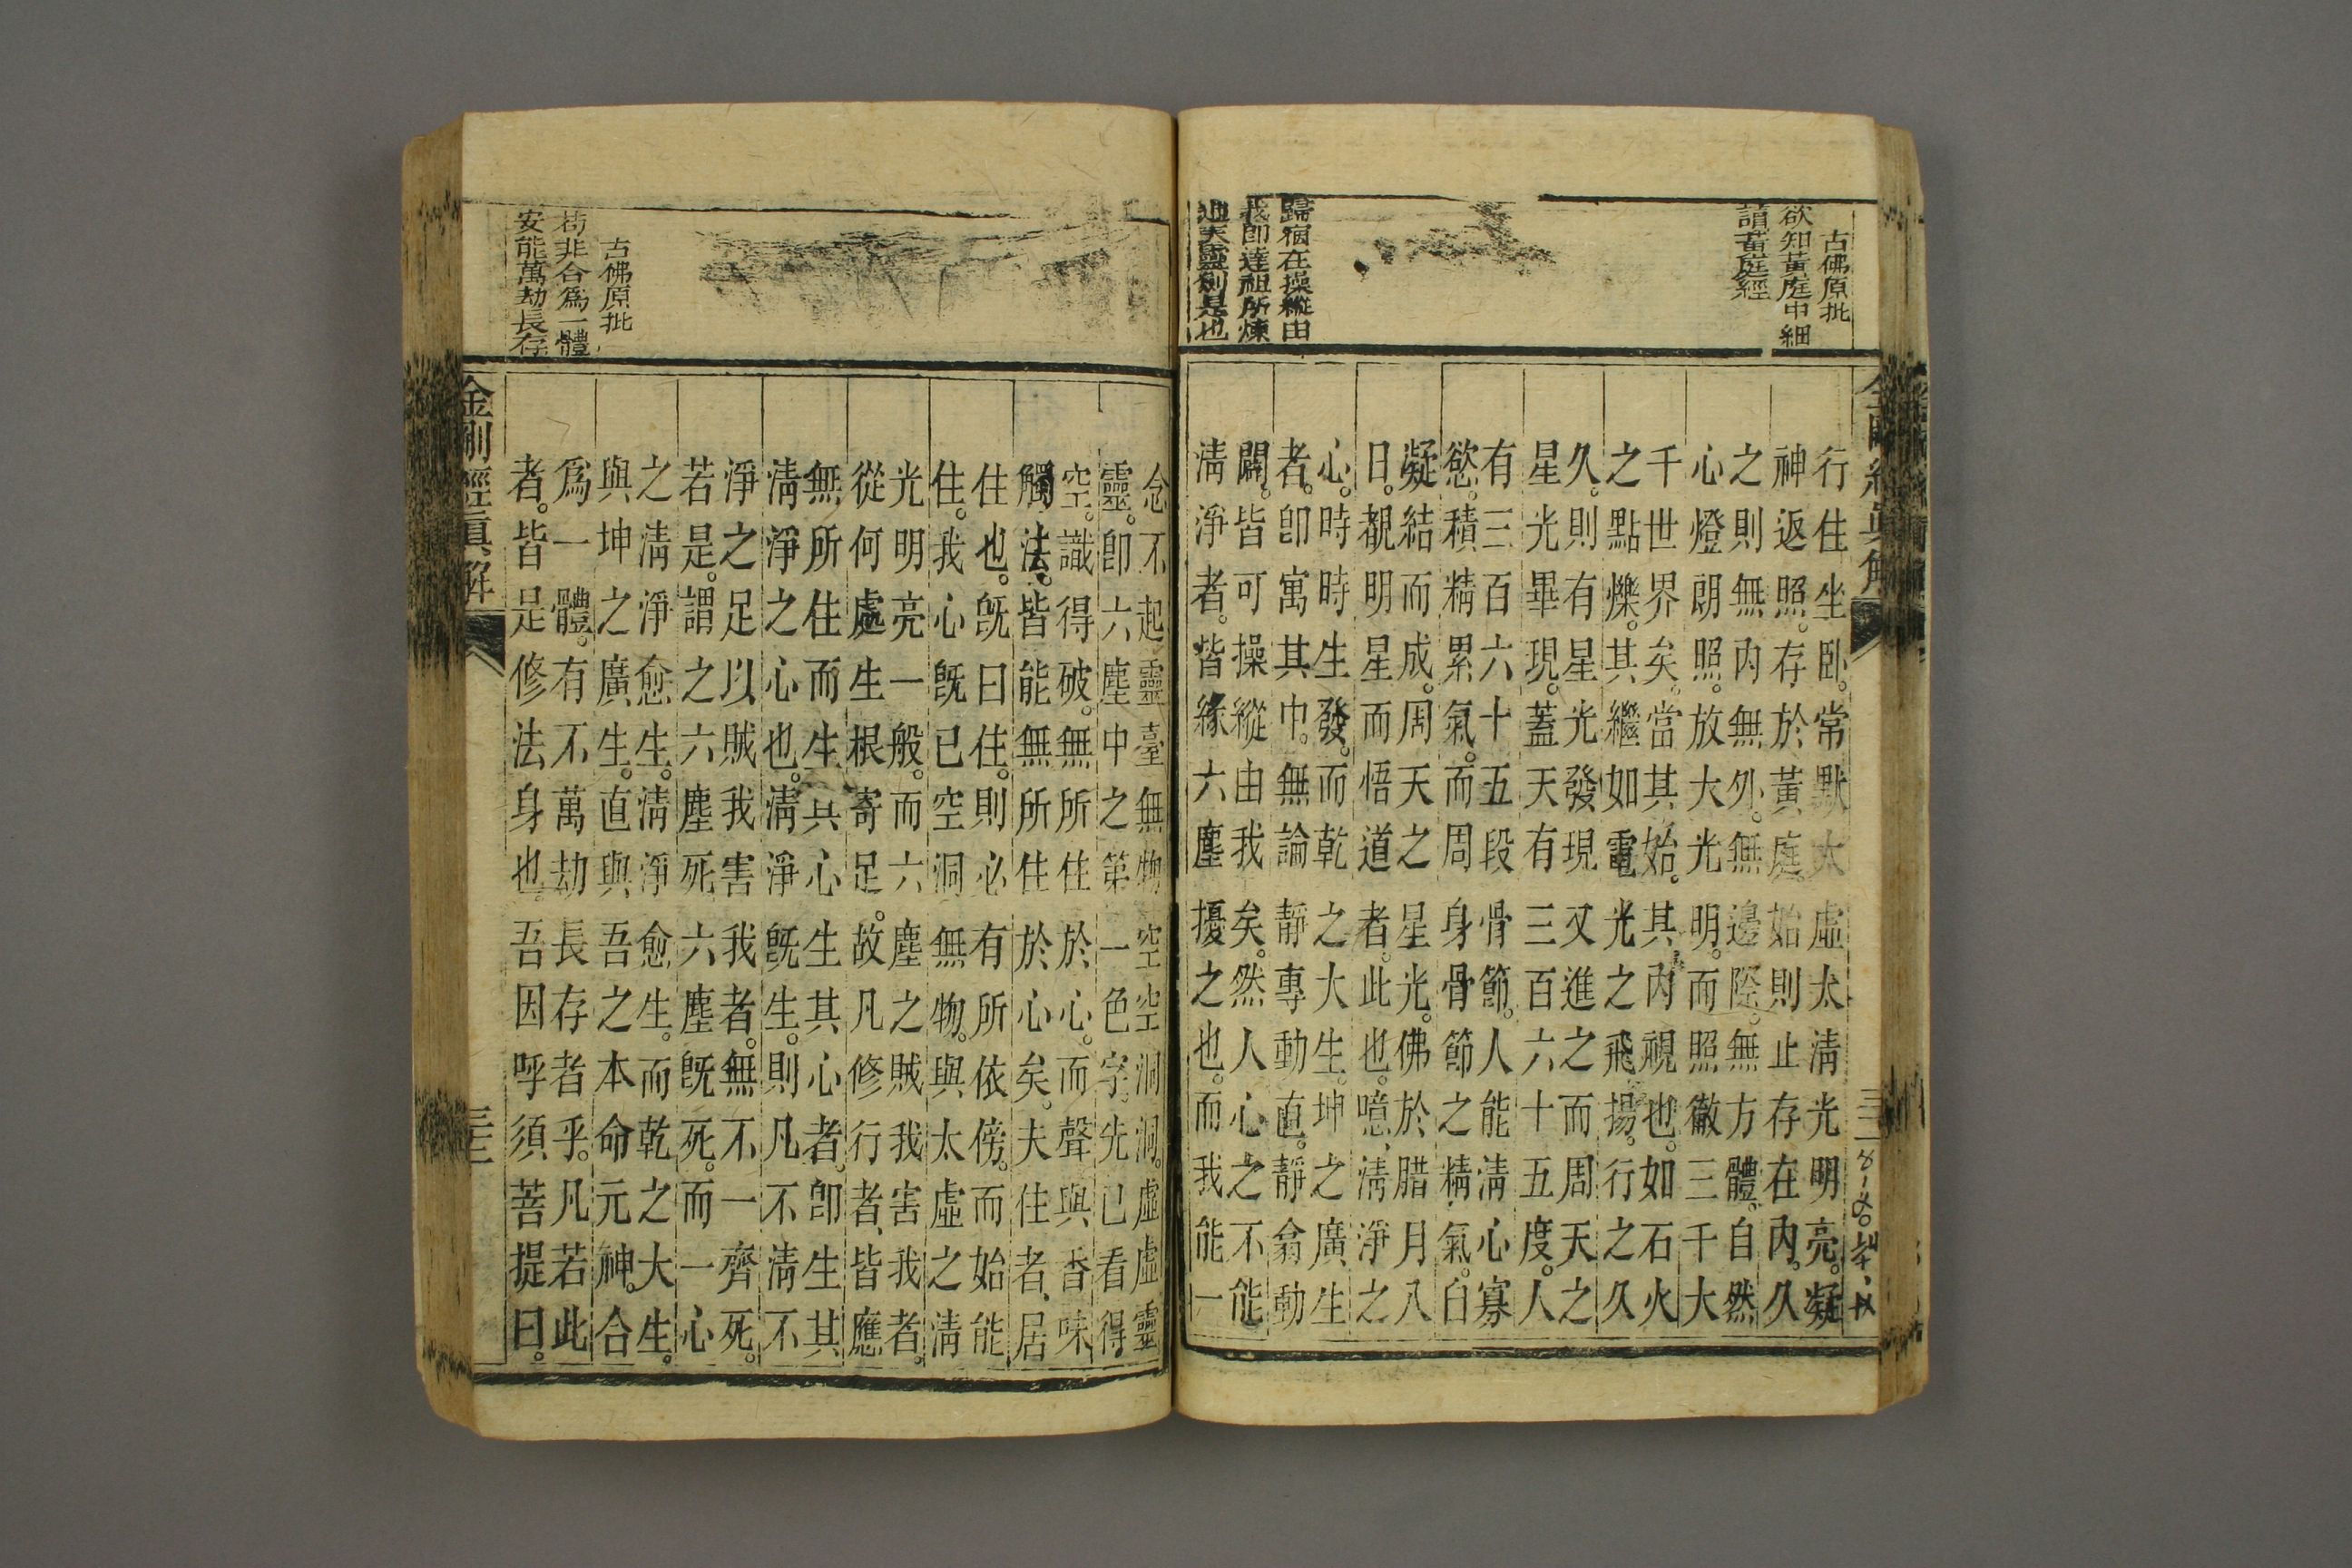 金剛經眞解
三二
古佛原批
欲知黃庭中細
讀黃庭經
歸宿在操縱由
我卽達祖所煉
通天靈劍是也
行住坐卧。常默太虛太淸光明亮。凝
神返照。存於黃庭。始則止存在內。久
之則無內無外。無邊際。無方體。自然
心燈朗照。放大光明。而照徹三千大
千世界矣。當其始。其內視也。如石火
之點爍。其繼如電光之飛揚。行之久
久。則有星光發現。又進之而周天之
星光畢現。蓋天有三百六十五度。人
有三百六十五段骨節。人能淸心寡
慾。積精累氣。而周身骨節之精氣。自
凝結而成。周天之星光。佛於腊月八
日。覩明星而悟道者。此也。噫、淸淨之
心。時時生發。而乾之大生。坤之廣生
者。卽寓其中。無論靜專動直。靜翕動
闢。皆可操縱由我矣。然人心之不能
淸淨者。皆緣六塵擾之也。而我能一
古佛原批
苟非合爲一體
安能萬劫長存
念不起靈臺無物空空洞洞。虛虛靈
靈。卽六塵中之第一色字。先已看得
空。識得破。無所住於心。而聲與香味
觸法。皆能無所住於心矣。夫住者、居
住也。旣曰住。則必有所依傍。而始能
住。我心旣已空洞無物。與太虛之淸
光明亮一般。而六塵之賊我害我者。
從何處生根寄足。故凡修行者、皆應
無所住而生其心生其心者。卽生其
淸淨之心也。淸淨旣生。則凡不淸不
淨之足以賊我害我者。無不一齊死。
若是。謂之六塵死六塵旣死。而一心
之淸淨愈生。淸淨愈生。而乾之大生。
與坤之廣生。直與吾之本命元神。合
爲一體。有不萬劫長存者乎。凡若此
者。皆是修法身也。吾因呼須菩提曰。
金剛經眞解
三二